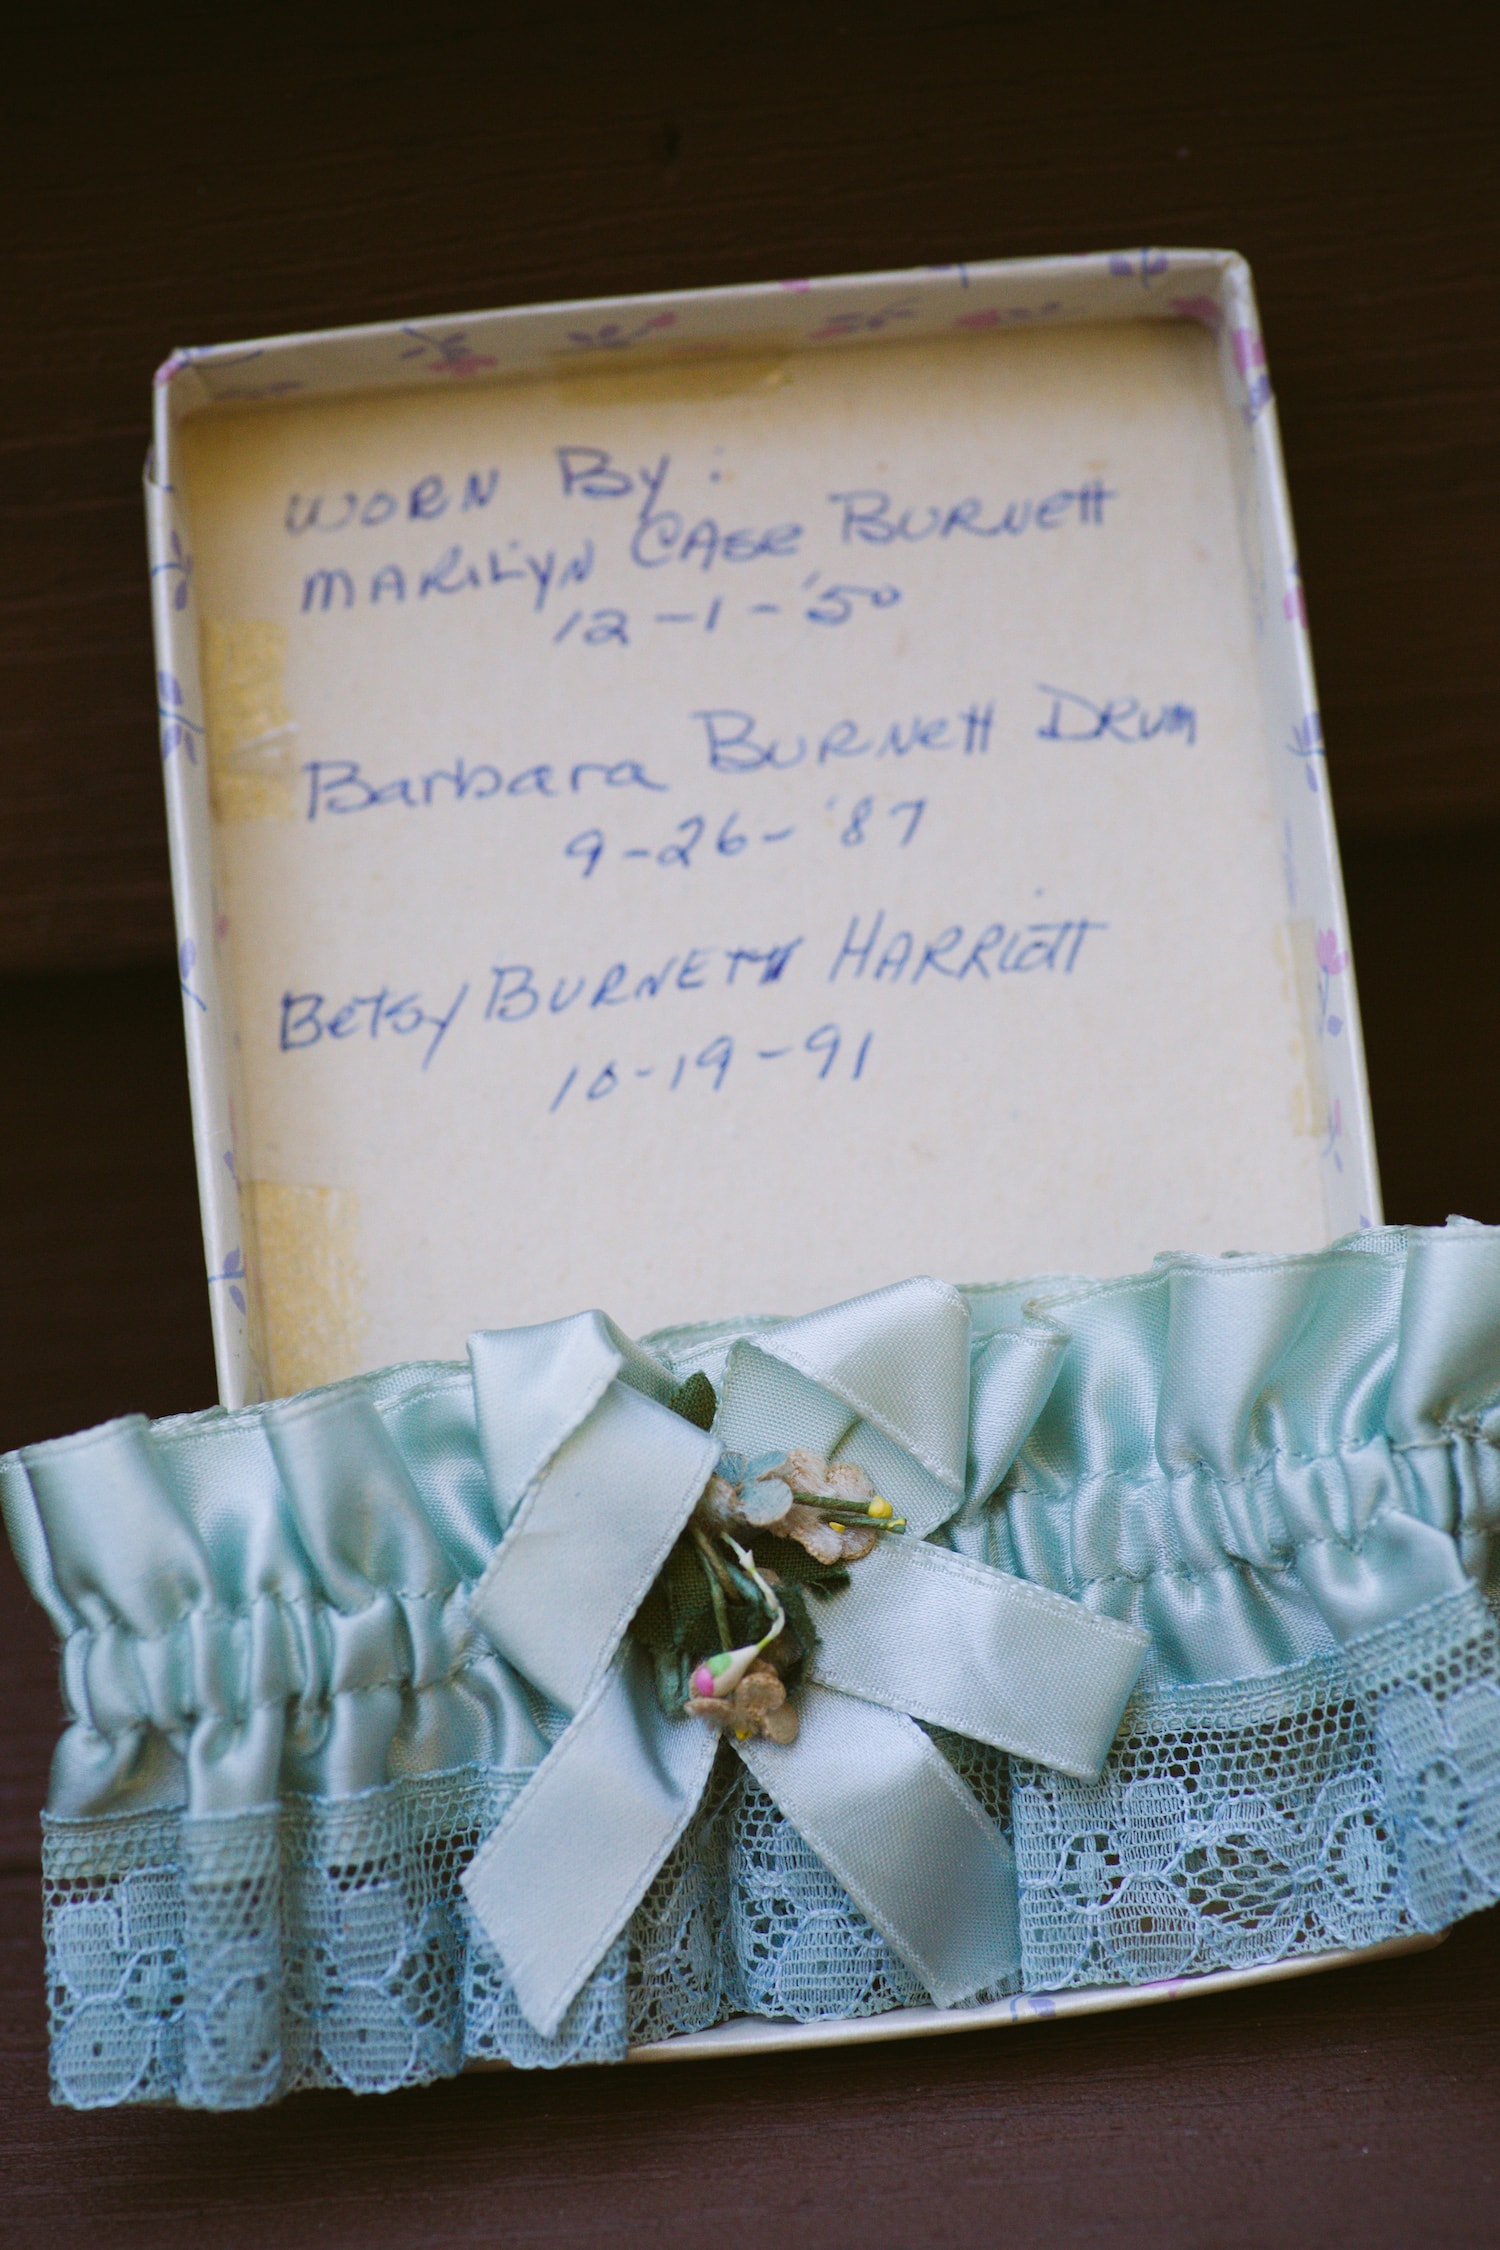 WORN By:
MARILYN CASE BURNETT
12-1-'50
Barbara BURNETT DRUM
9-26-'87
Betsy BURNETT HARRIOTT
10-19-91